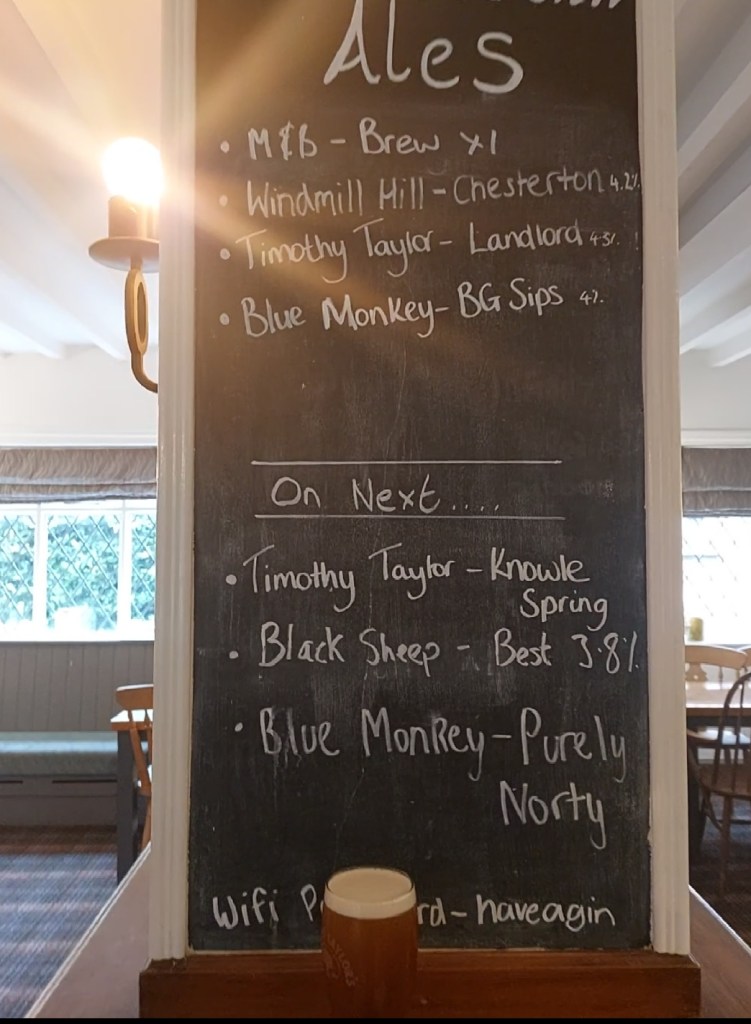 Ales
• M&B - Brew XI
• Windmill Hill - Chesterton 4.2%
• Timothy Taylor - Landlord 4.3%
• Blue Monkey - BG Sips 4%
On Next....
• Timothy Taylor - Knowle
Spring
• Black Sheep - Best 3.8%
• Blue Monkey - Purely
Norty
Wifi P rd - haveagin